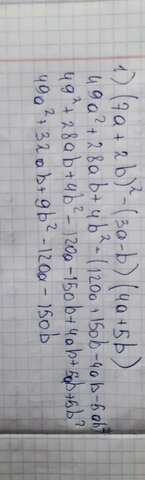 1) (7a + 2b)² - (3a - b) (4a + 5b)
49a² + 28ab + 4b² - (120a + 150b - 4ab - 5b²
49² + 28ab + 4b² - 120a - 150b + 4ab + 5b²
49a² + 32ab + 9b² - 120a - 150b